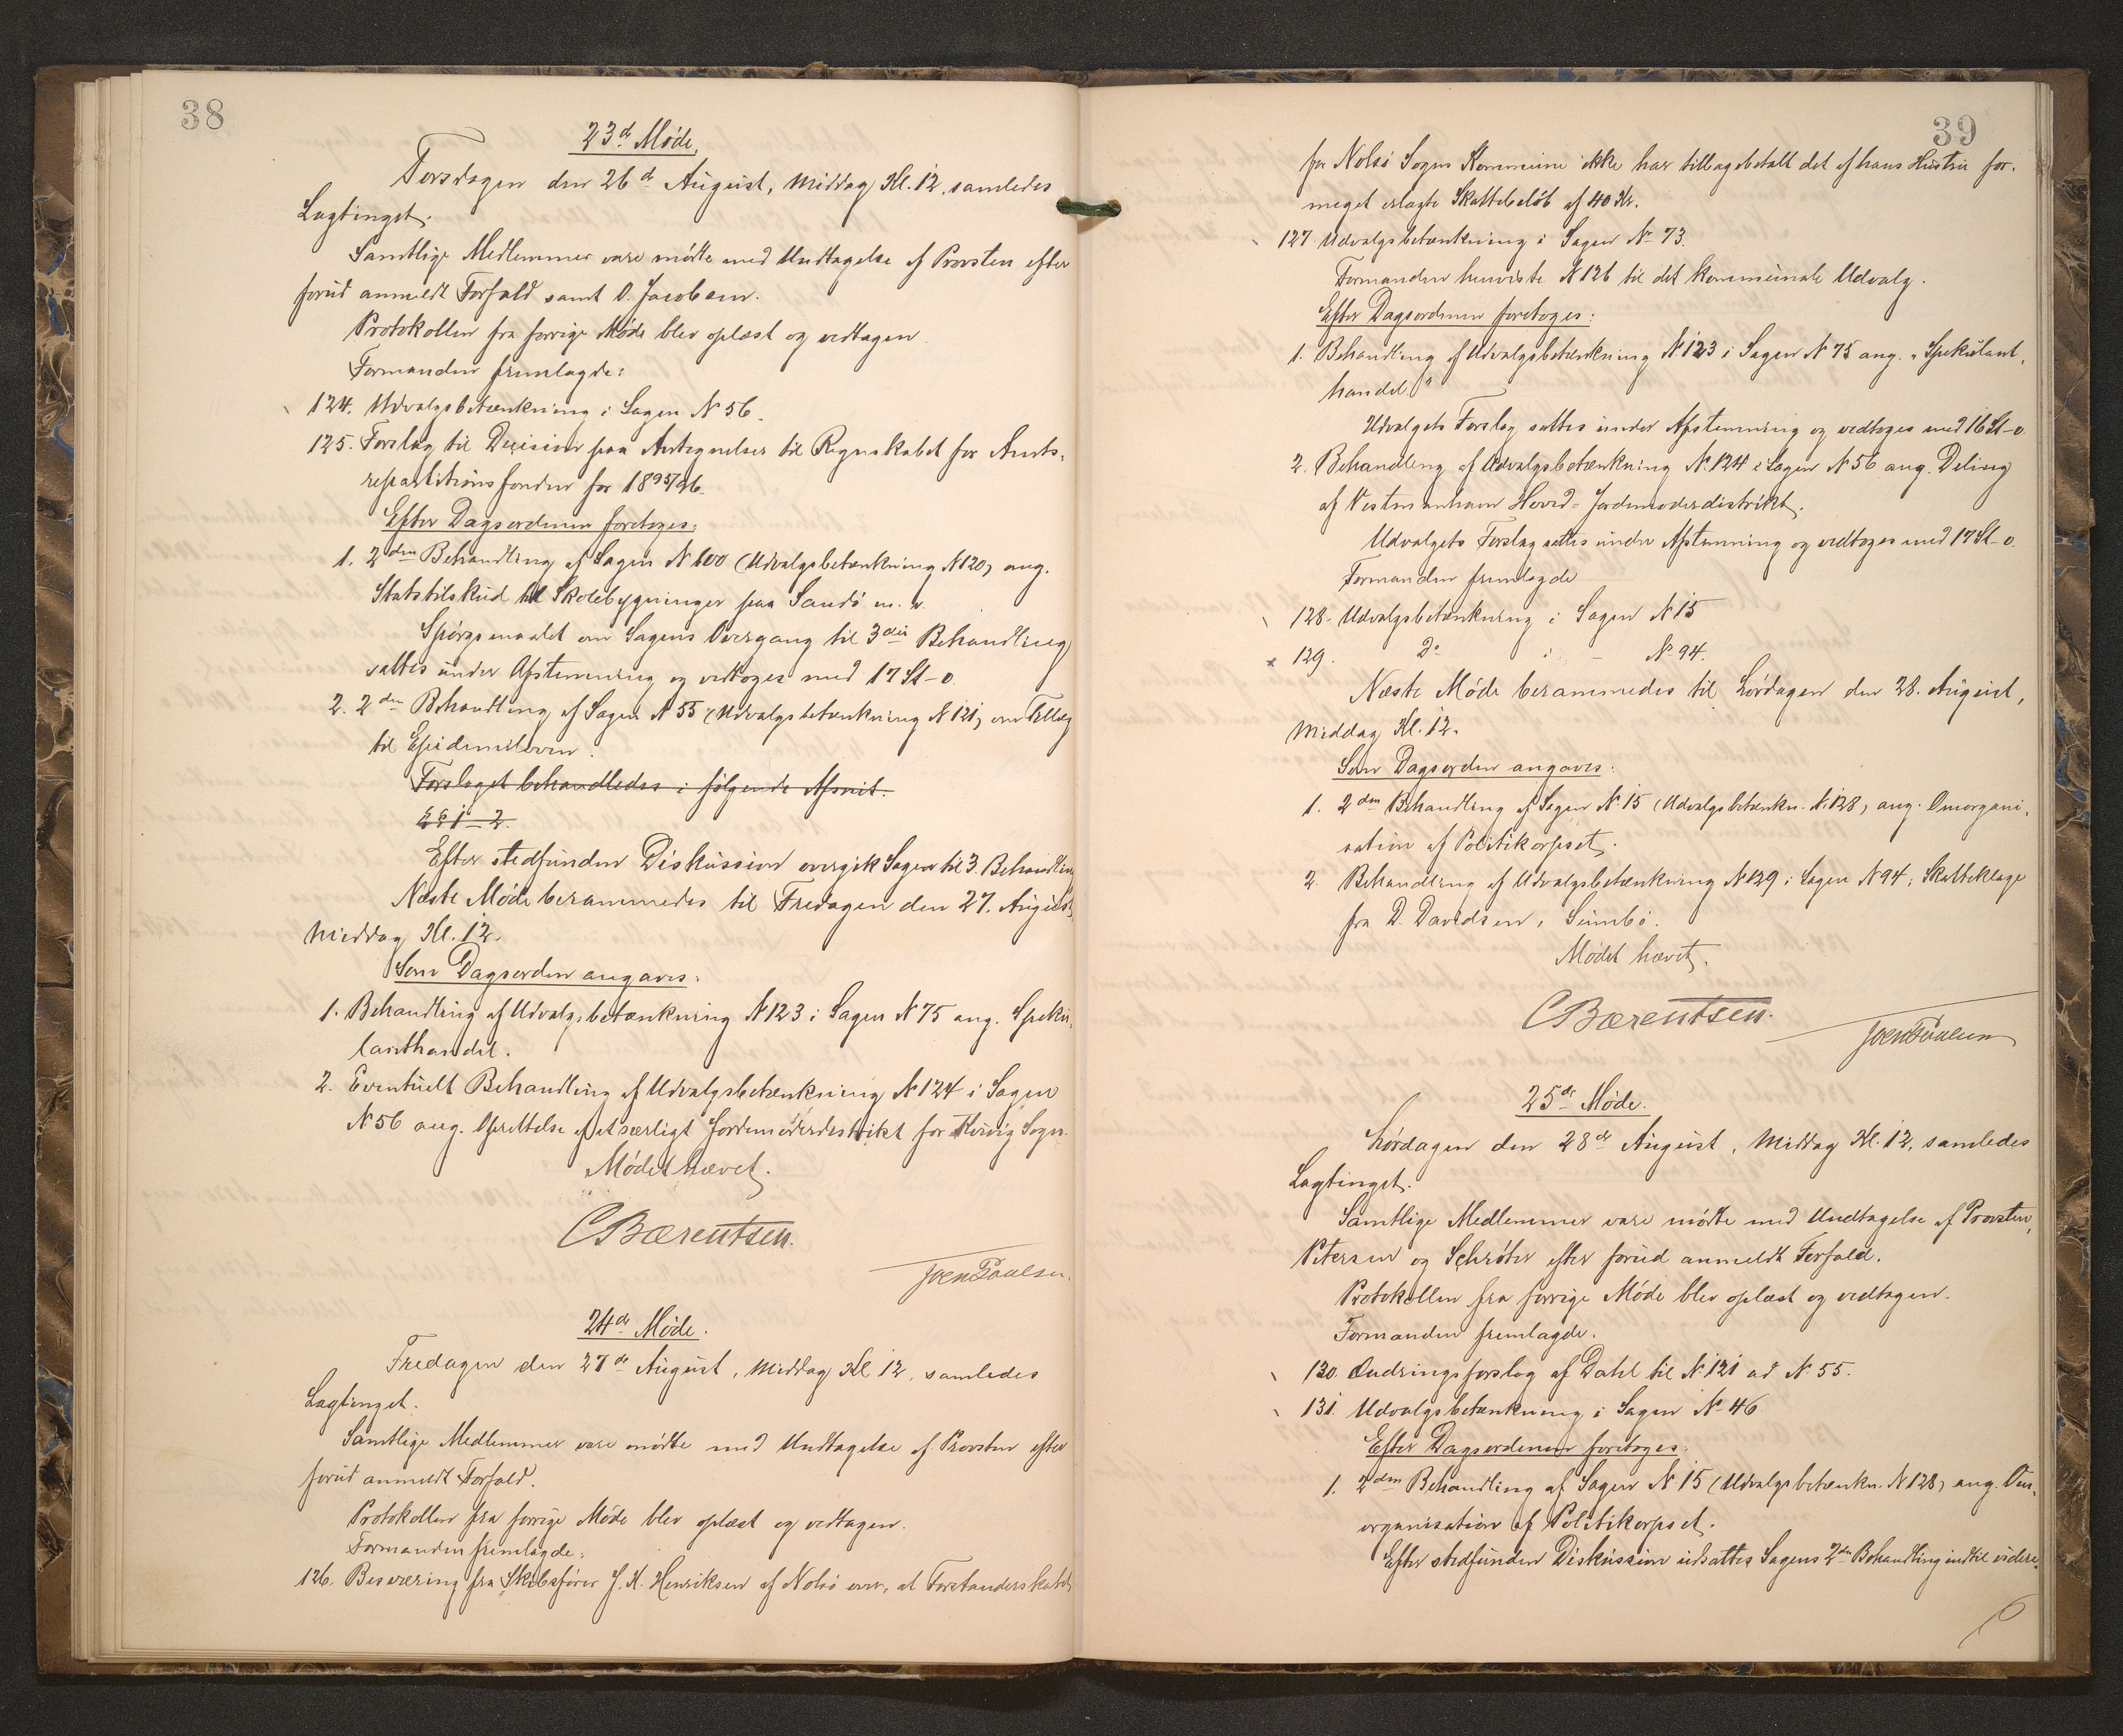 38
23d Møde.
Torsdagen den 26d August, Middag Kl. 12, samledes
Lagtinget.
Samtlige Medlemmer vare mødte med Undtagelse af Provsten efter
forud anmeldt Forfald samt O. Jacobsen.
Protokollen fra forrige Møde blev oplæst og vedtagen.
Formanden fremlagde:
124. Udvalgsbetænkning i Sagen N 56.
125. Forslag til Decision paa Antegnelser til Regnskabet for Amts-
repartitionsfonden for 1895/96.
Efter Dagsordenen foretoges:
1. 2den Behandling af Sagen N 100 (Udvalgsbetænkning N 120) ang.
Statstilskud til Skolebygninger paa Sandø m. v.
Spørgsmaalet om Sagens Overgang til 3die Behandling
sattes under Afstemning og vedtoges med 17 St-0.
2. 2den Behandling af Sagen N 55 (Udvalgsbetænkning N 121) om Tillæg
til Epidemiloven.
Forslaget behandledes i følgende Afsnit.
§§ 1-2.
Efter stedfunden Diskussion overgik Sagen til 3. Behandling
Næste Møde berammedes til Fredagen den 27. August,
Middag Kl. 12.
Som Dagsorden angaves:
1. Behandling af Udvalgsbetænkning N 123 i Sagen N 75 ang. Speku-
lanthandel.
2. Eventuelt Behandling af Udvalgsbetænkning N 124 i Sagen
N 56 ang. Oprettelse af et særligt Jordemoderdistrikt for Kvivig Sogn.
Mødet hævet.
CBærentsen.
Joen Poulsen.
24de Møde.
Fredagen den 27de August, Middag Kl 12, samledes
Lagtinget.
Samtlige Medlemmer vare mødte med Undtagelse af Provsten efter
forud anmeldt Forfald.
Protokollen fra forrige Møde blev oplæst og vedtagen.
Formanden fremlagde:
126. Besværing fra Skibsfører J. K. Henriksen af Nolsø over, at Forstanderskabet
39
for Nolsø Sogns Kommune ikke har tilbagebetalt det af hans Hustru for-
meget erlagte Skattebeløb af 40 Kr.
127 Udvalgsbetænkning i Sagen No 73.
Formanden henviste N 126 til det kommunale Udvalg.
Efter Dagsordenen foretoges:
1. Behandling af Udvalgsbetænkning N 123 i Sagen N 75 ang. "Spekulant-
handel"
Udvalgets Forslag sattes under Afstemning og vedtoges med 16 St-0.
2. Behandling af Udvalgsbetænkning N. 124 i Sagen N 56 ang. Deling
af Vestmanhavn Hoved-Jordemoderdistrikt.
Udvalgets Forslag sattes under Afstemning og vedtoges med 17 St-0.
Formanden fremlagde
128. Udvalgsbetænkning i Sagen N 15
129. Do i - No 94.
Næste Møde berammedes til Lørdagen den 28. August,
Middag Kl. 12.
Som Dagsorden angaves:
1. 2den Behandling af Sagen N. 15 (Udvalgsbetænkn. N. 128) ang. Omorgani-
sation af Politikorpset.
2. Behandling af Udvalgsbetænkning N 129 i Sagen N 94; Skatteklage
fra D. Davidsen, Sumbø.
Mødet hævet.
CBærentsen.
Joen Poulsen
25de Møde.
Lørdagen den 28de August, Middag Kl. 12, samledes
Lagtinget.
Samtlige Medlemmer vare mødte med Undtagelse af Provsten,
Petersen og Schrøter efter forud anmeldt Forfald.
Protokollen fra forrige Møde blev oplæst og vedtagen.
Formanden fremlagde.
130. Ændringsforslag af Dahl til N. 121 ad N. 55.
131. Udvalgsbetænkning i Sagen No 46.
Efter Dagsordenen foretoges:
1. 2den Behandling af Sagen N. 15 (Udvalgsbetænkn. N 128) ang. Om-
organisation af Politikorpset.
Efter stedfunden Diskussion udsattes Sagens 2den Behandling indtil videre.